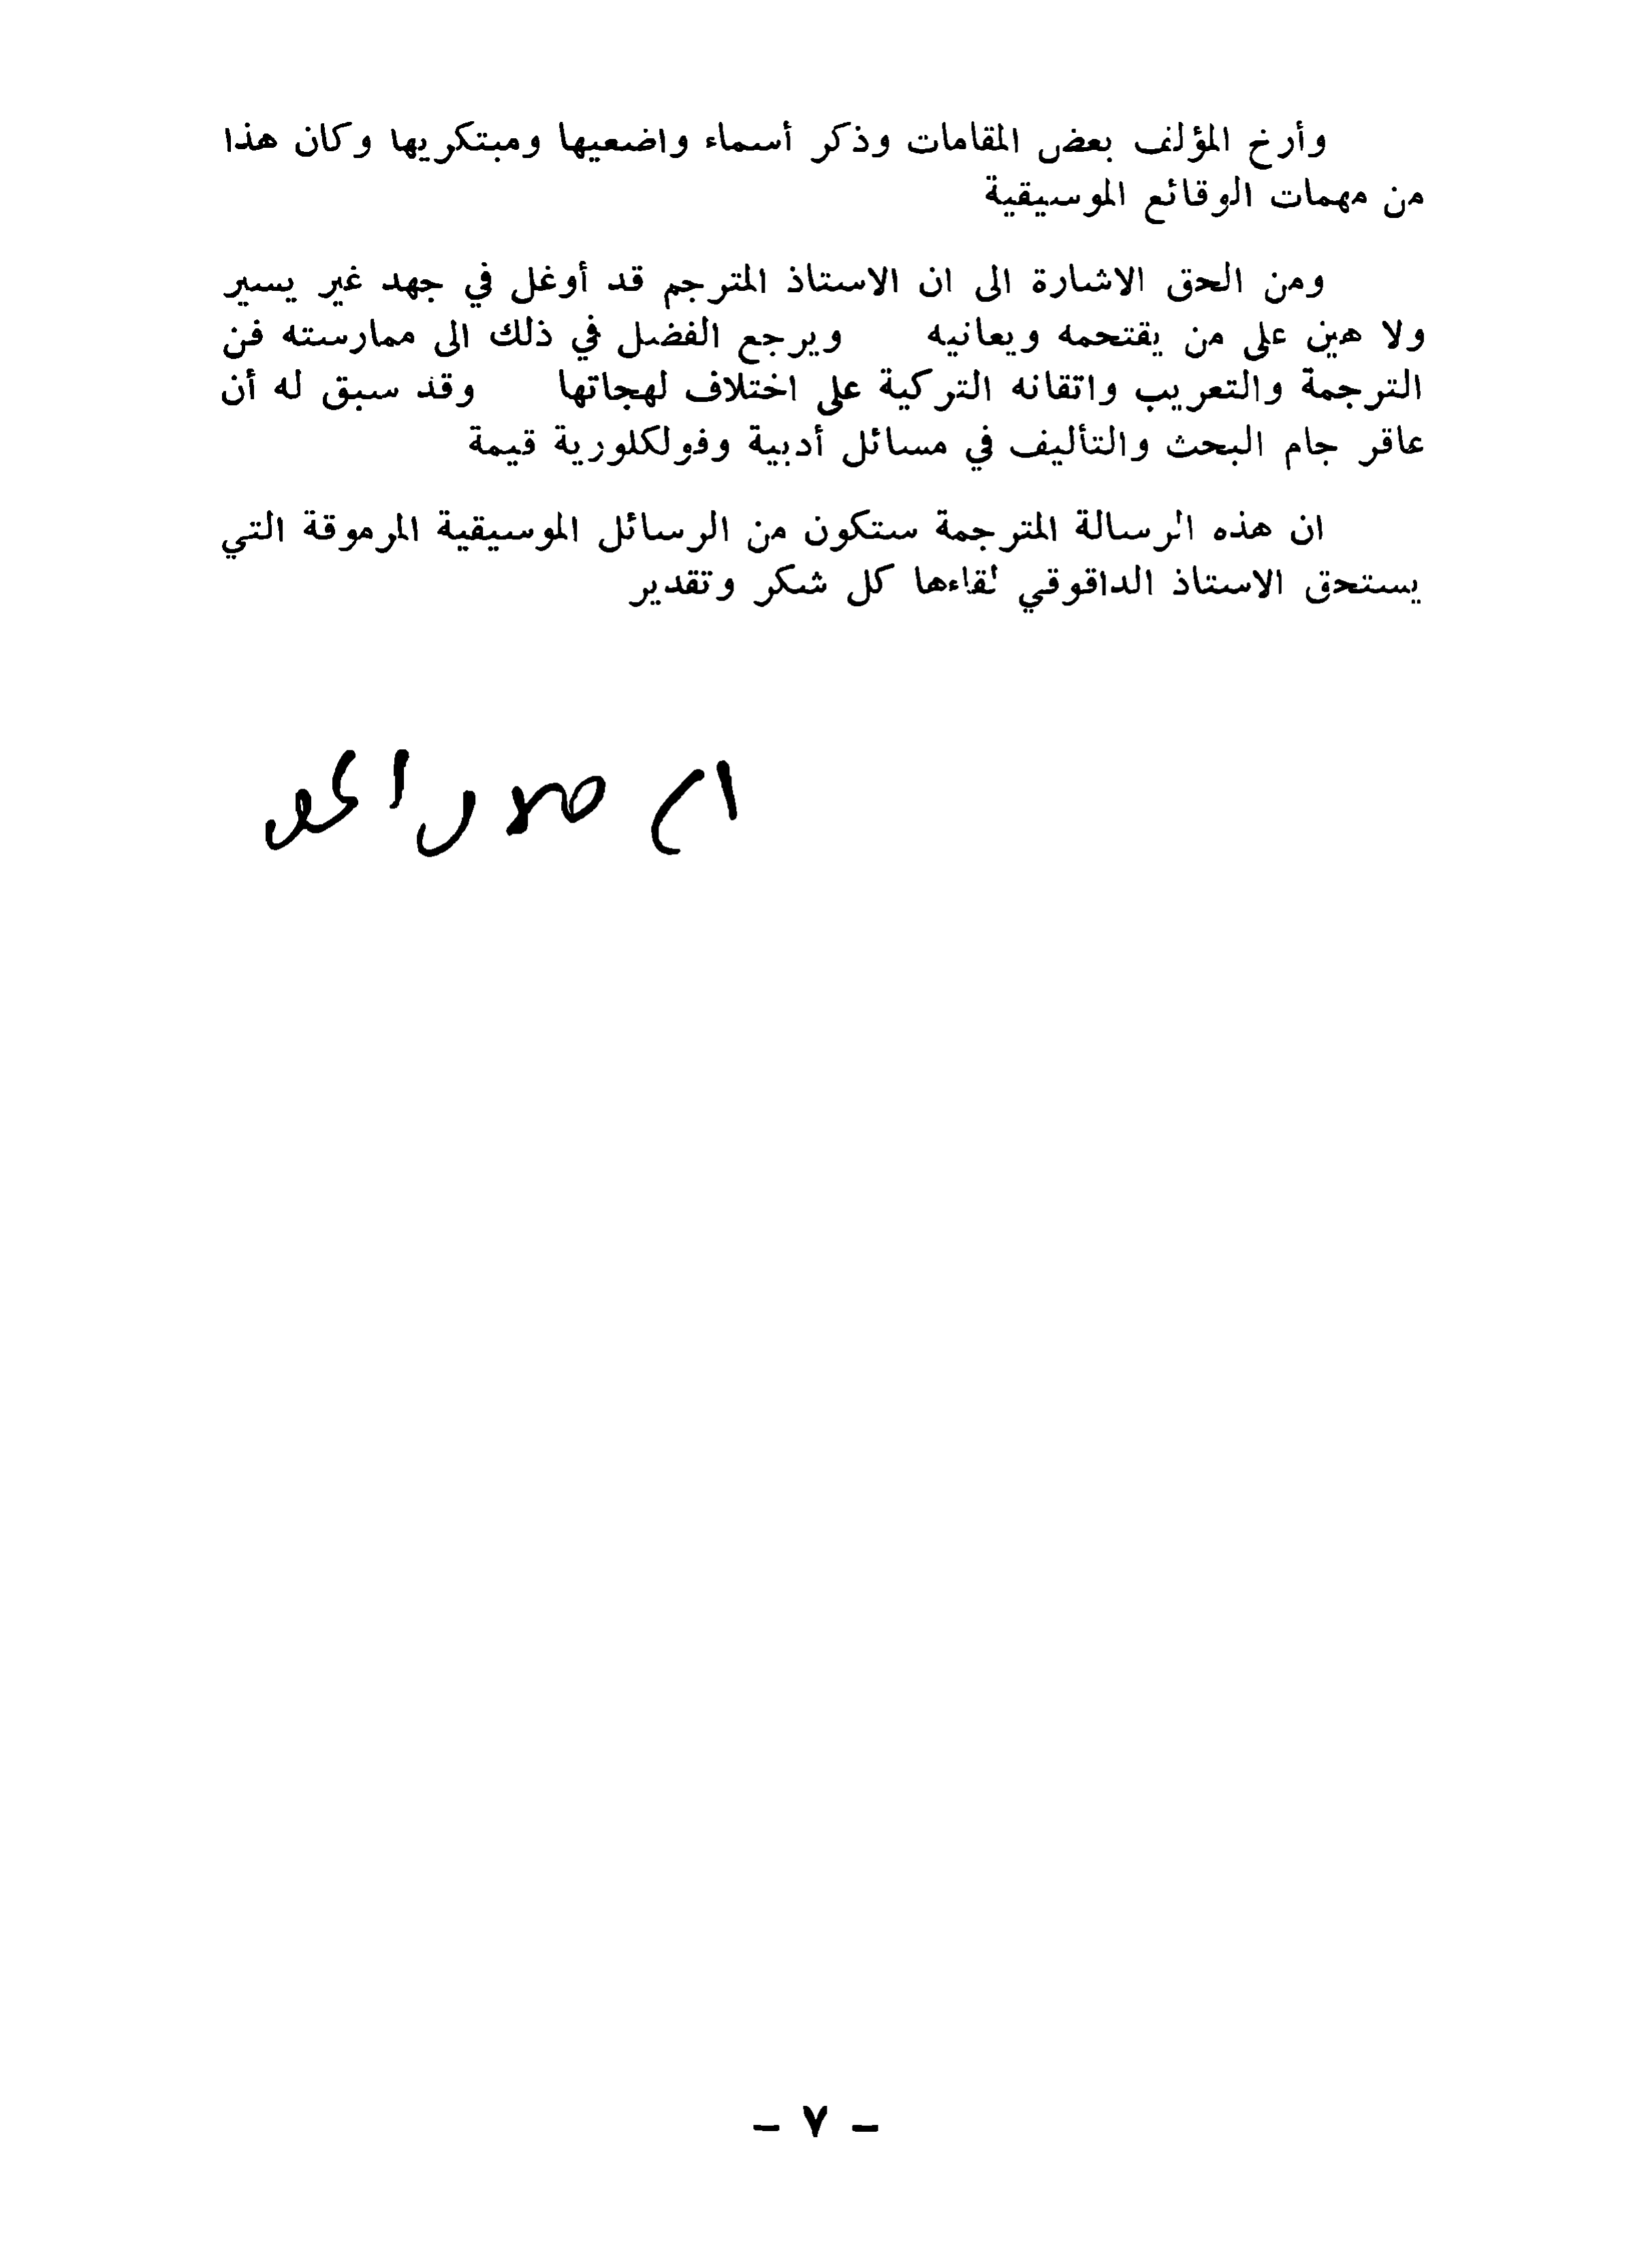 وأرخ المؤلف بعض المقامات وذكر أسماء واضعيها ومبتكريها وكان هذا
من مهمات الوقائع الموسيقية
ومن الحق الاشارة الى ان الاستاذ المترجم قد أوغل في جهد غير يسير
ولا هين على من يقتحمه ويعانيه ويرجع الفضل في ذلك الى ممارسته فن
الترجمة والتعريب واتقانه التركية على اختلاف لهجاتها وقد سبق له أن
عاقر جام البحث والتأليف في مسائل أدبية وفولكلورية قيمة
ان هذه الرسالة المترجمة ستكون من الرسائل الموسيقية المرموقة التي
يستحق الاستاذ الداقوقي لقاءها كل شكر وتقدير
- ٧ -